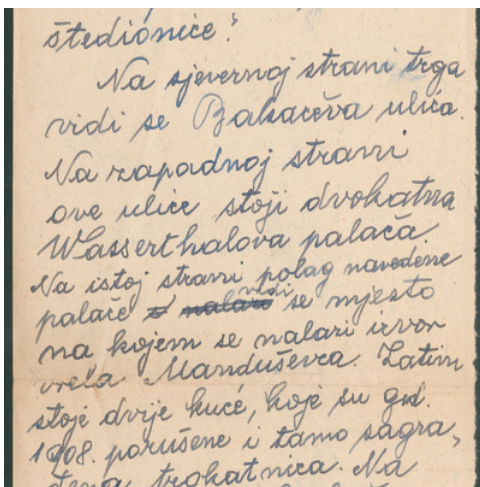 štedionice."
Na sjevernoj strani trga
vidi se Bakačeva ulica.
Na zapadnoj strani
ove ulice stoji dvokatna
Wasserthalova palača
Na istoj strani polag navedene
palače z nalazi vidi se mjesto
na kojem se nalazi izvor
vrela Manduševca. Zatim
stoje dvije kuće, koje su god.
1908. porušene i tamo sagra-
đena trokatnica. Na